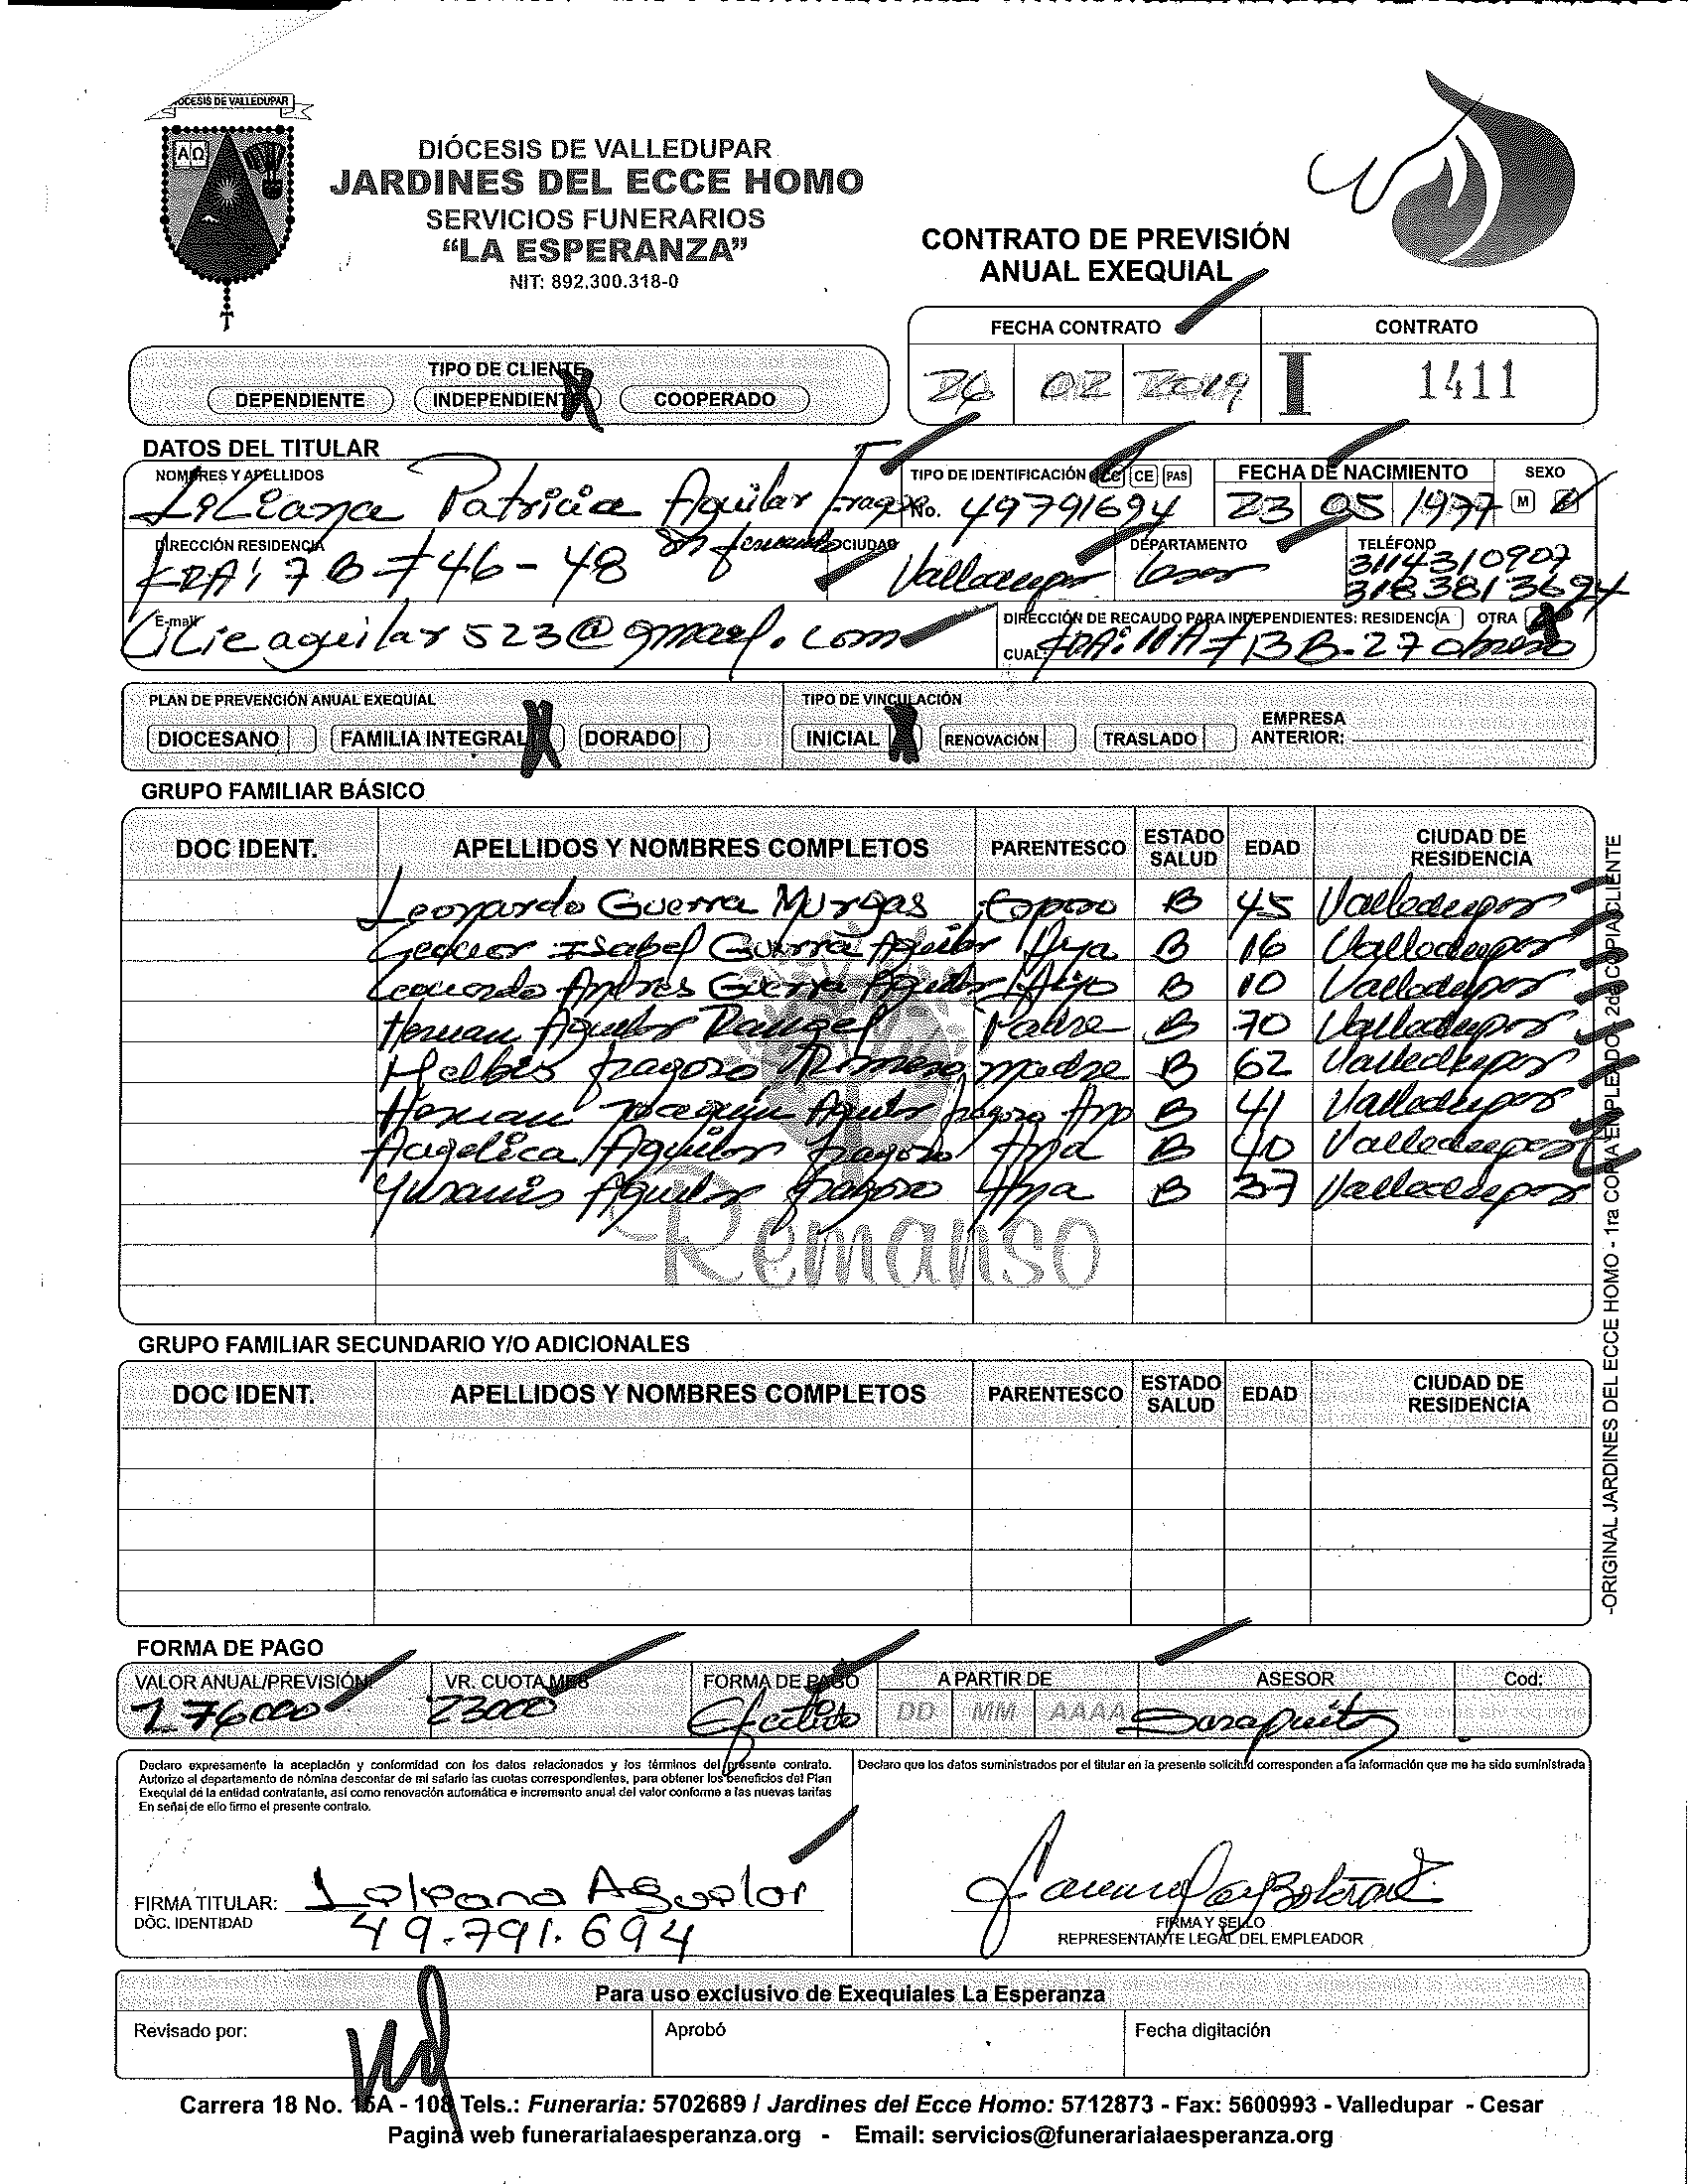 DIÓCESIS DE VALLEDUPAR
DIÓCESIS DE VALLEDUPAR
JARDINES DEL ECCE HOMO
SERVICIOS FUNERARIOS
“LA ESPERANZA”
NIT: 892.300.318-0
CONTRATO DE PREVISIÓN
ANUAL EXEQUIAL
FECHA CONTRATO CONTRATO
02 2019 I 1411
TIPO DE CLIENTE
DEPENDIENTE INDEPENDIENTE X COOPERADO
DATOS DEL TITULAR
NOMBRES Y APELLIDOS TIPO DE IDENTIFICACIÓN CC CE PAS FECHA DE NACIMIENTO SEXO
Liliana Patricia Aguilar Fragozo No. 49791694 23 05 1977 M F
DIRECCIÓN RESIDENCIA CIUDAD DEPARTAMENTO TELÉFONO
KRA: 7B # 46-48 Sn fernando Valledupar Cesar 3114310907
3183813694
E-mail DIRECCIÓN DE RECAUDO PARA INDEPENDIENTES: RESIDENCIA OTRA X
Lilieaguilar523@gmael.com CUAL: KRA: 11A # 13B-27 obrero
PLAN DE PREVENCIÓN ANUAL EXEQUIAL TIPO DE VINCULACIÓN
DIOCESANO FAMILIA INTEGRAL X DORADO INICIAL X RENOVACIÓN TRASLADO EMPRESA ANTERIOR:
GRUPO FAMILIAR BÁSICO
DOC IDENT. APELLIDOS Y NOMBRES COMPLETOS PARENTESCO ESTADO SALUD EDAD CIUDAD DE RESIDENCIA
Leonardo Guerra Murgas Esposo B 45 Valledupar
Isabel Guerra Aguilar Hija B 16 Valledupar
Leonardo Andres Guerra Aguilar Hijo B 10 Valledupar
Hernan Aguilar Rangel Padre B 70 Valledupar
Melbis fragozo Romero madre B 62 Valledupar
Hernan Joaquin Aguilar fragozo Hno B 41 Valledupar
Angelica Aguilar fragozo Hna B 40 Valledupar
Yuranis Aguilar fragozo Hna B 37 Valledupar
Remanso
GRUPO FAMILIAR SECUNDARIO Y/O ADICIONALES
DOC IDENT. APELLIDOS Y NOMBRES COMPLETOS PARENTESCO ESTADO SALUD EDAD CIUDAD DE RESIDENCIA
-ORIGINAL JARDINES DEL ECCE HOMO - 1ra COPIA EMPLEADO, 2da COPIA CLIENTE
FORMA DE PAGO
VALOR ANUAL/PREVISIÓN VR. CUOTA MES FORMA DE PAGO A PARTIR DE ASESOR Cod:
276000 23000 Efectivo DD MM AAAA
Declaro expresamente la aceptación y conformidad con los datos relacionados y los términos del presente contrato.
Autorizo al departamento de nómina descontar de mi salario las cuotas correspondientes, para obtener los beneficios del Plan
Exequial de la entidad contratante, así como renovación automática e incremento anual del valor conforme a las nuevas tarifas
En señal de ello firmo el presente contrato.
Declaro que los datos suministrados por el titular en la presente solicitud corresponden a la información que me ha sido suministrada
FIRMA TITULAR: Liliana Aguilar
DOC. IDENTIDAD 49.791.694
FIRMA Y SELLO
REPRESENTANTE LEGAL DEL EMPLEADOR
Para uso exclusivo de Exequiales La Esperanza
Revisado por: Aprobó Fecha digitación
Carrera 18 No. 15A - 108 Tels.: Funeraria: 5702689 / Jardines del Ecce Homo: 5712873 - Fax: 5600993 - Valledupar - Cesar
Pagina web funerarialaesperanza.org - Email: servicios@funerarialaesperanza.org